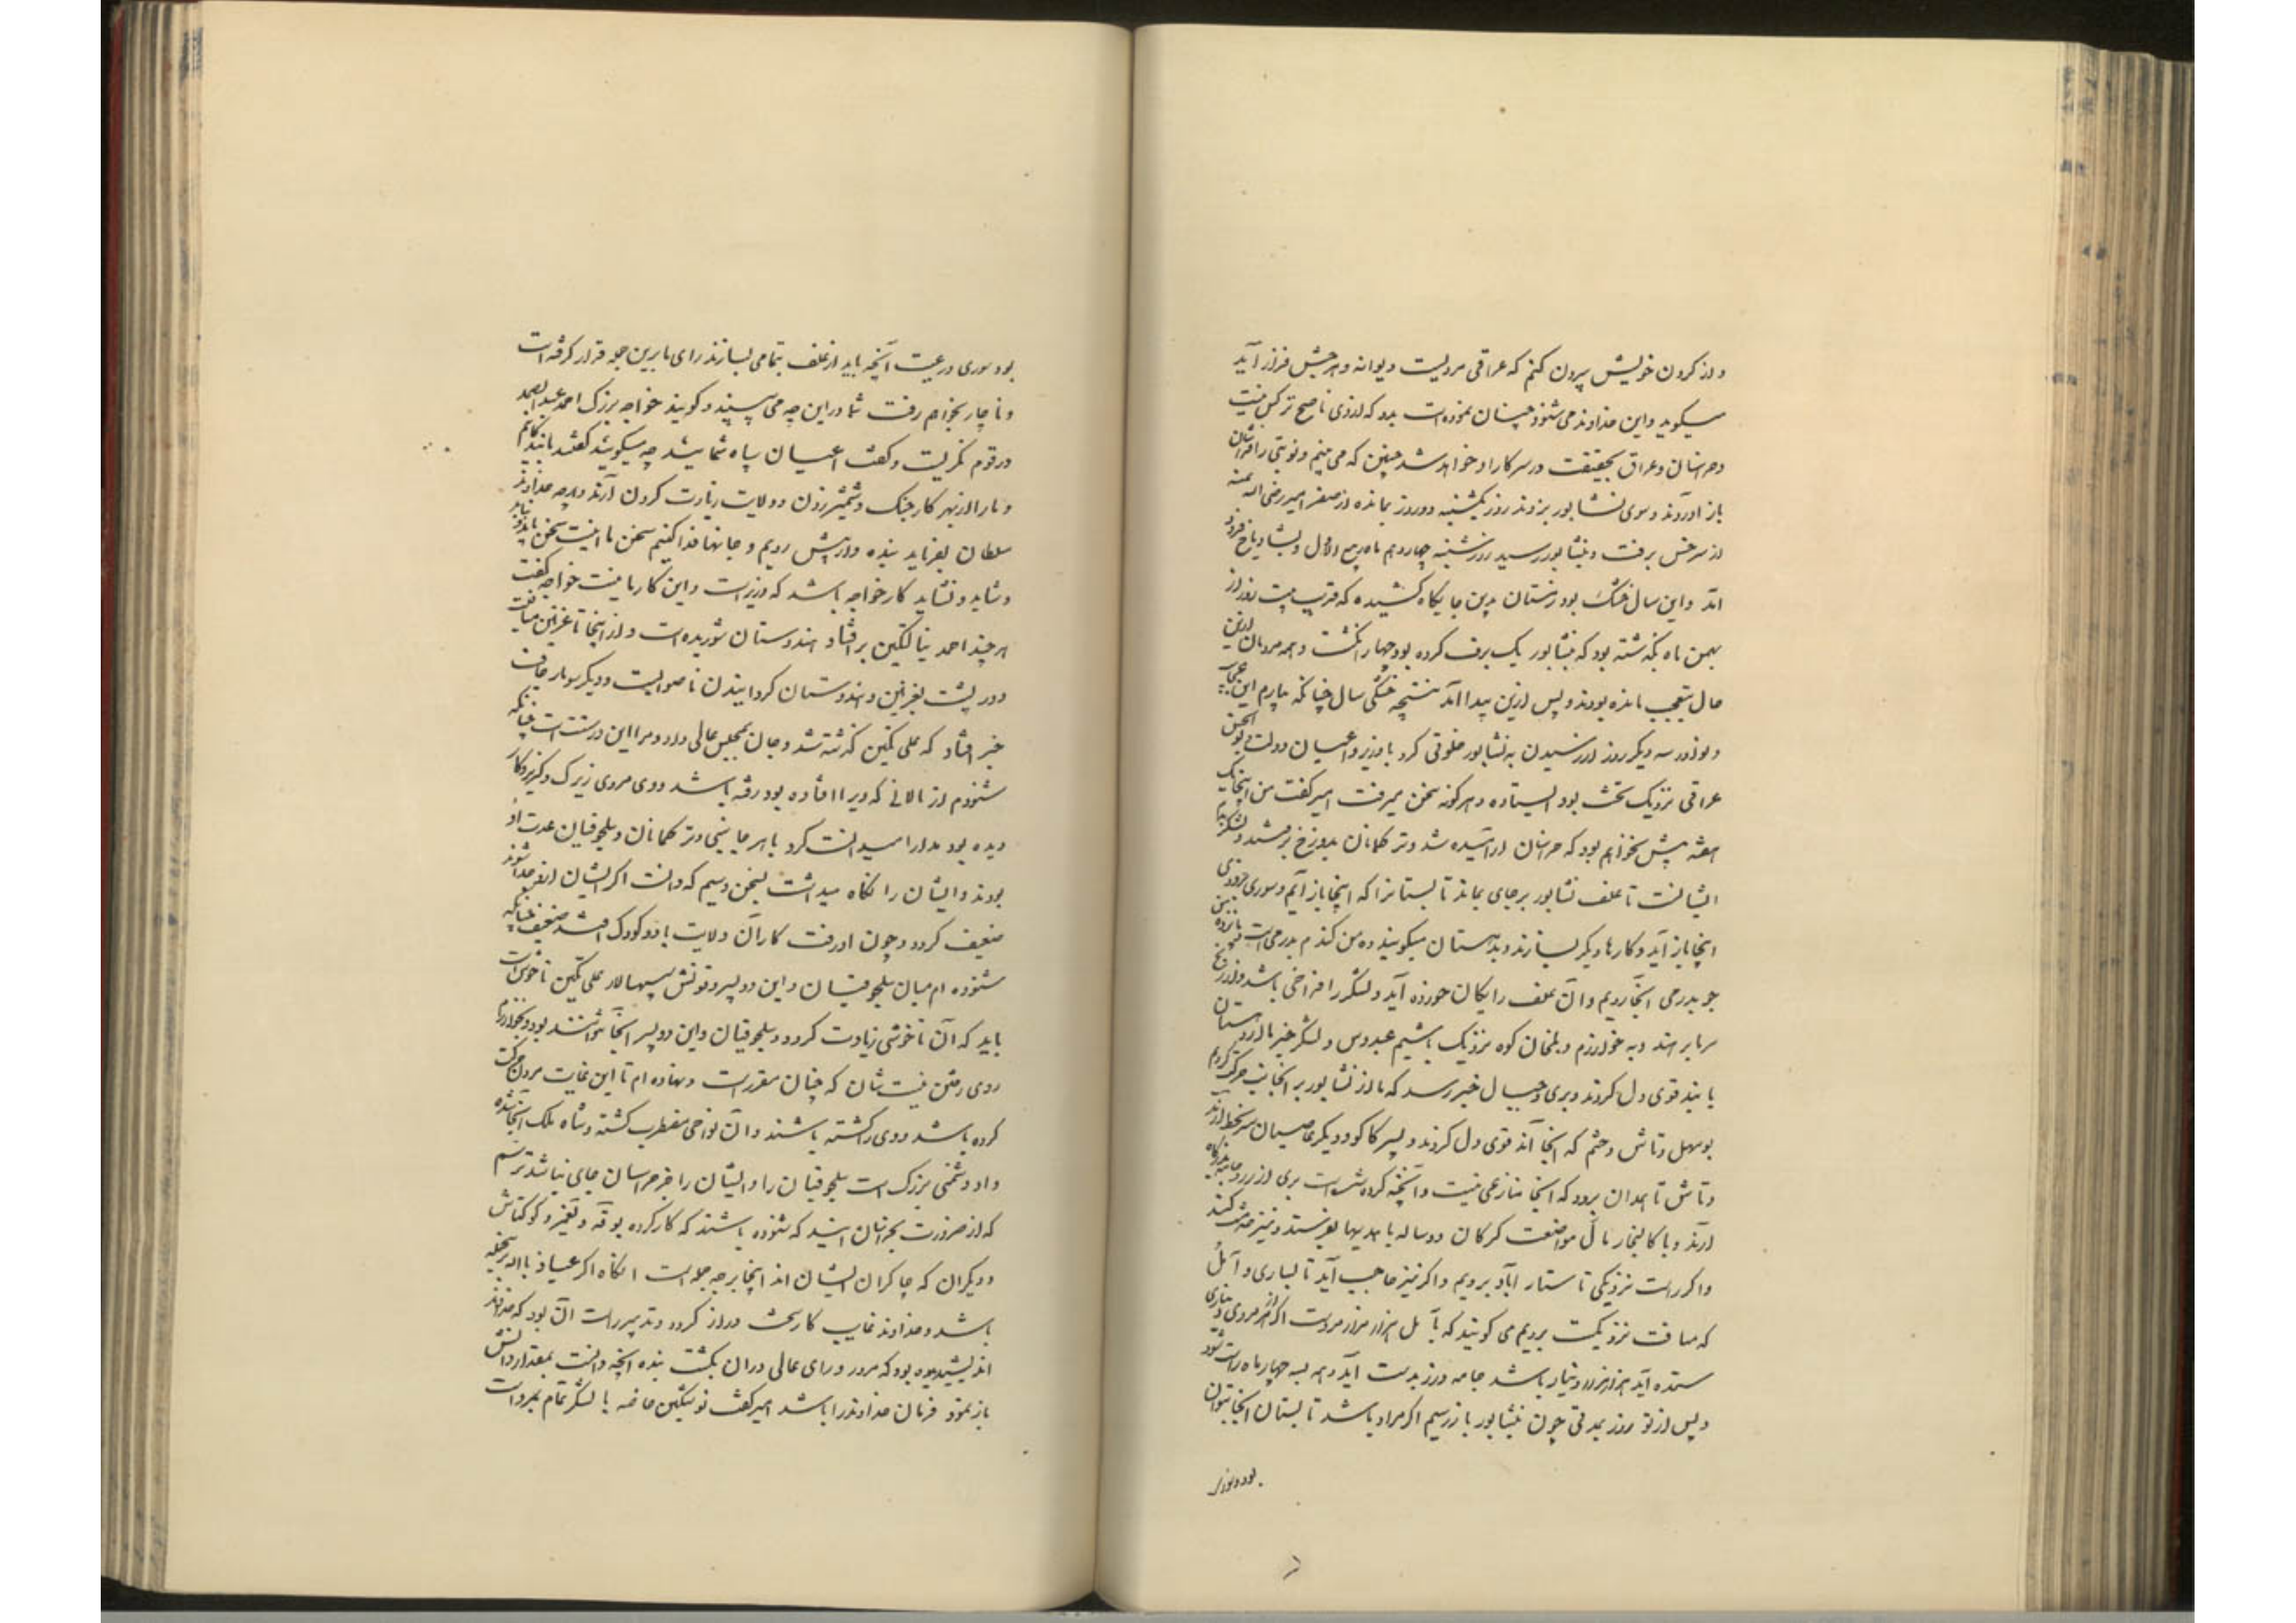 و از گردن خویش بیرون کنم که عراقی مردیست دیوانه و هرچش فراز آید
میگوید و این خداوند می‌شنود و چنان نموده است بدو که از وی ناصح تر کس نیست
و خراسان و عراق بحقیقت در سر کار او خواهد شد چنین که می بینم و نوبتی را فرمان
باز آوردند و سوی نشابور بردند روز یکشنبه دو روز مانده از صفر امیر رضی الله عنه
از سرخس برفت و بنشابور رسید روز شنبه چهاردهم ماه ربیع الاول و بشادیاخ فرود
آمد و این سال خشک بود زمستان بدین جایگاه کشیده که قریب بیست روز از
بهمن ماه بگذشته بود که بنشابور یک برف کرده بود چهار انگشت و همه مردمان ازین
حال بتعجب مانده بودند و پس ازین پیدا آمد نتیجه خشکی سال چنانکه بیارم این عجایب
و نوادر سه دیگر روز از رسیدن به نشابور خلوتی کرد با وزیر و اعیان دولت ابوالحسن
عراقی نزدیک تخت بود ایستاده و هر گونه سخن میرفت امیر گفت من اینجا یک
هفته بیش نخواهم بود که خراسان آرامیده شد و ترکمانان بدوزخ برفتند و لشکر بدم
ایشانست تا علف نشابور بر جای بماند تابستانرا که اینجا باز آییم و سوری بزودی
اینجا باز آید و کارها دیگر بسازند و بدهستان میگویند ده من گندم بدرمی است و پانزده من
جو بدرمی آنجا رویم و آن علف رایگان خورده آید و لشکر را فراخی باشد و از رنج
سرما برهند و به خوارزم و بلخان کوه نزدیک باشیم عبدوس و لشکر خبر ما از دهستان
یابند قوی دل گردند و بری و جبال خبر رسد که ما از نشابور بر آنجانب حرکت کردیم
بوسهل و تاش و حشم که آنجا اند قوی دل گردند و پسر کاکو و دیگر عاصیان سر بخط آرند
و تاش تا همدان برود که آنجا منازعی نیست و آنچه گرد شده است بری از زر و جامه بدرگاه
آرند و باکالیجار مال مواضعت گرگان دو ساله با هدیها بفرستد و نیز خدمت کند
و اگر راست نزدیکی تا ستارآباد برویم و اگر نیز حاجت آید تا بساری و آمل
که مسافت نزدیکست برویم می گویند که بآمل هزار هزار مردست اگر از هر مردی دیناری
ستده آید هزار هزار دینار باشد جامه و زر بدست آید و همه بسه چهار ماه راست شود
و پس از نو روز بمدتی چون بنشابور باز رسیم اگر مراد باشد تابستان آنجا بتوان
بود و سوری
بود سوری و رعیت آنچه باید از علف بتمامی بسازند رای ما برین جمله قرار گرفته است
و ناچار بخواهم رفت شما در این چه می بینید و گویند خواجه بزرگ احمد عبدالصمد
در قوم نگریست و گفت اعیان سپاه شمایید چه میگویید گفتند ما بندگانیم
و ما را از بهر کار جنگ و شمشیر زدن و ولایت زیادت کردن آرند و هر چه خداوند
سلطان بفرماید بنده وار پیش رویم و جانها فدا کنیم سخن ما اینست سخن باید و نباید
و شاید و نشاید کار خواجه باشد که وزیر است و این کار ما نیست خواجه گفت
هر چند احمد ینالتگین بر افتاد هندوستان شوریده است و از اینجا تا غزنین مسافت
و در پشت بغزنین و هندوستان گردانیدن ناصوابست و دیگر سو بار جانب
خبر افتاد که علی تگین گذشته شد و جان بمجلس عالی داد و مرا این درست است چنانکه
شنودم از نالانی که ویرا افتاده بود رفته باشد و وی مردی زیرک و گربز و کار
دیده بود مدارا میدانست کرد با هر جانبی و ترکمانان و سلجوقیان عدت او
بودند و ایشان را نگاه میداشت بسخن و سیم که دانست اگر ایشان ازو جدا شوند
ضعیف گردد و چون او رفت کار آن ولایت با دو کودک افتد ضعیف چنانکه
شنوده ام میان سلجوقیان و این دو پسر و قونش سپهسالار علی تگین ناخوشی است
باید که آن ناخوشی زیادت گردد و سلجوقیان و این دو پسر آنجا نتوانند بود و بخوارزم
روی رفتن نیست شان که چنان مقررست و نهاده ام تا این غایت هرون حرکت
کرده باشد و وی را کشته باشند و آن نواحی مضطرب گشته و شاه ملک آنجا شده
و او دشمنی بزرگ است سلجوقیان را و ایشان را جز خراسان جای نباشد ترسم
که از ضرورت بخراسان آیند که شنوده باشند که کار گروه بوقه و یغمر و کوکتاش
و دیگران که چاکران ایشان اند اینجا بر چه جمله است آنگاه اگر عیاذ بالله بر نجمله
باشد و خداوند غایب کار سخت دراز گردد و تدبیر راست آن بود که خداوند
اندیشیده بود که مرو و رای عالی در آن بگشت بنده آنچه دانست بمقدار دانش
باز نمود فرمان خداوند را باشد امیر گفت نوشتگین خاصه با لشکر تمام بمرو است